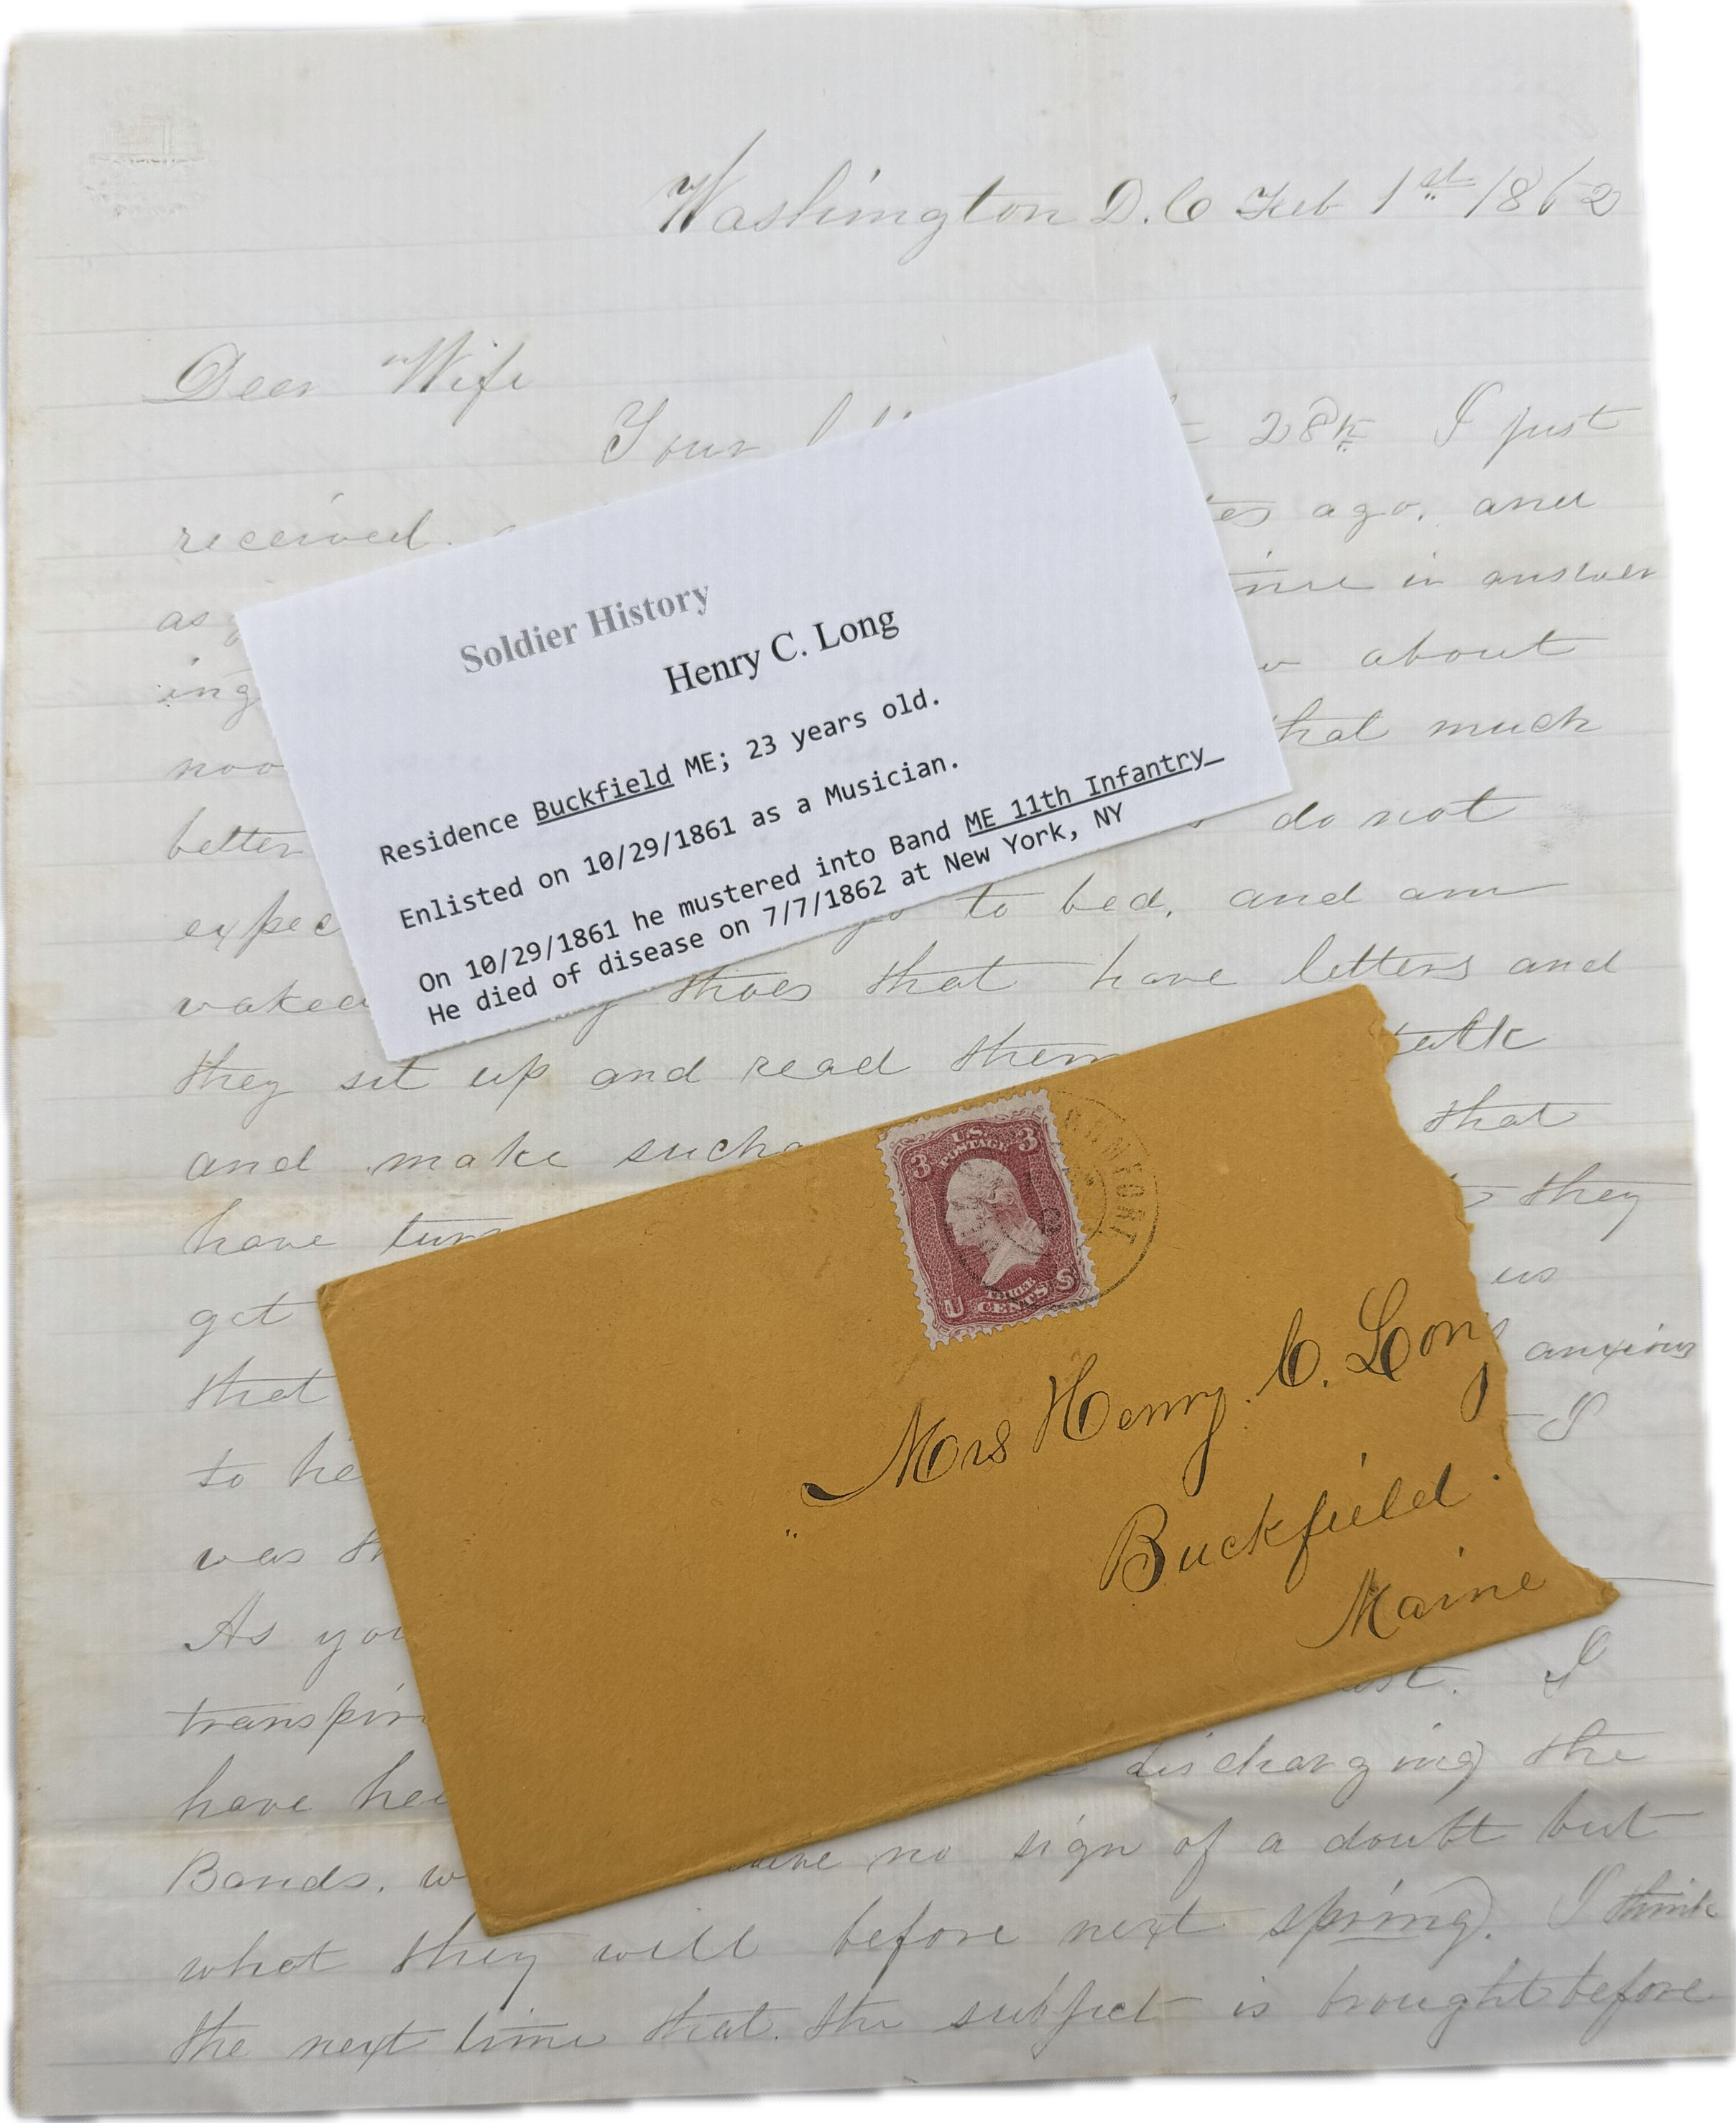 Washington D.C Feb 1st /862
Dear Wife
Your 28th I just
received. ago, and
as in answer
ing about
noo that much
better do not
expec to bed, and am
waked those that have letters and
they set up and read them talk
and make such a that
have they
get us
that anxious
to he I
was th
As you
transpir I
have hea discharging the
Bands. w no sign of a doubt but
what they will before next spring. I think
the next time that the subject is brought before
Soldier History
Henry C. Long
Residence Buckfield ME; 23 years old.
Enlisted on 10/29/1861 as a Musician.
On 10/29/1861 he mustered into Band ME 11th Infantry
He died of disease on 7/7/1862 at New York, NY
U.S.
POSTAGE
3 3
THREE
U CENTS S
Mrs Henry C. Long
Buckfield
Maine